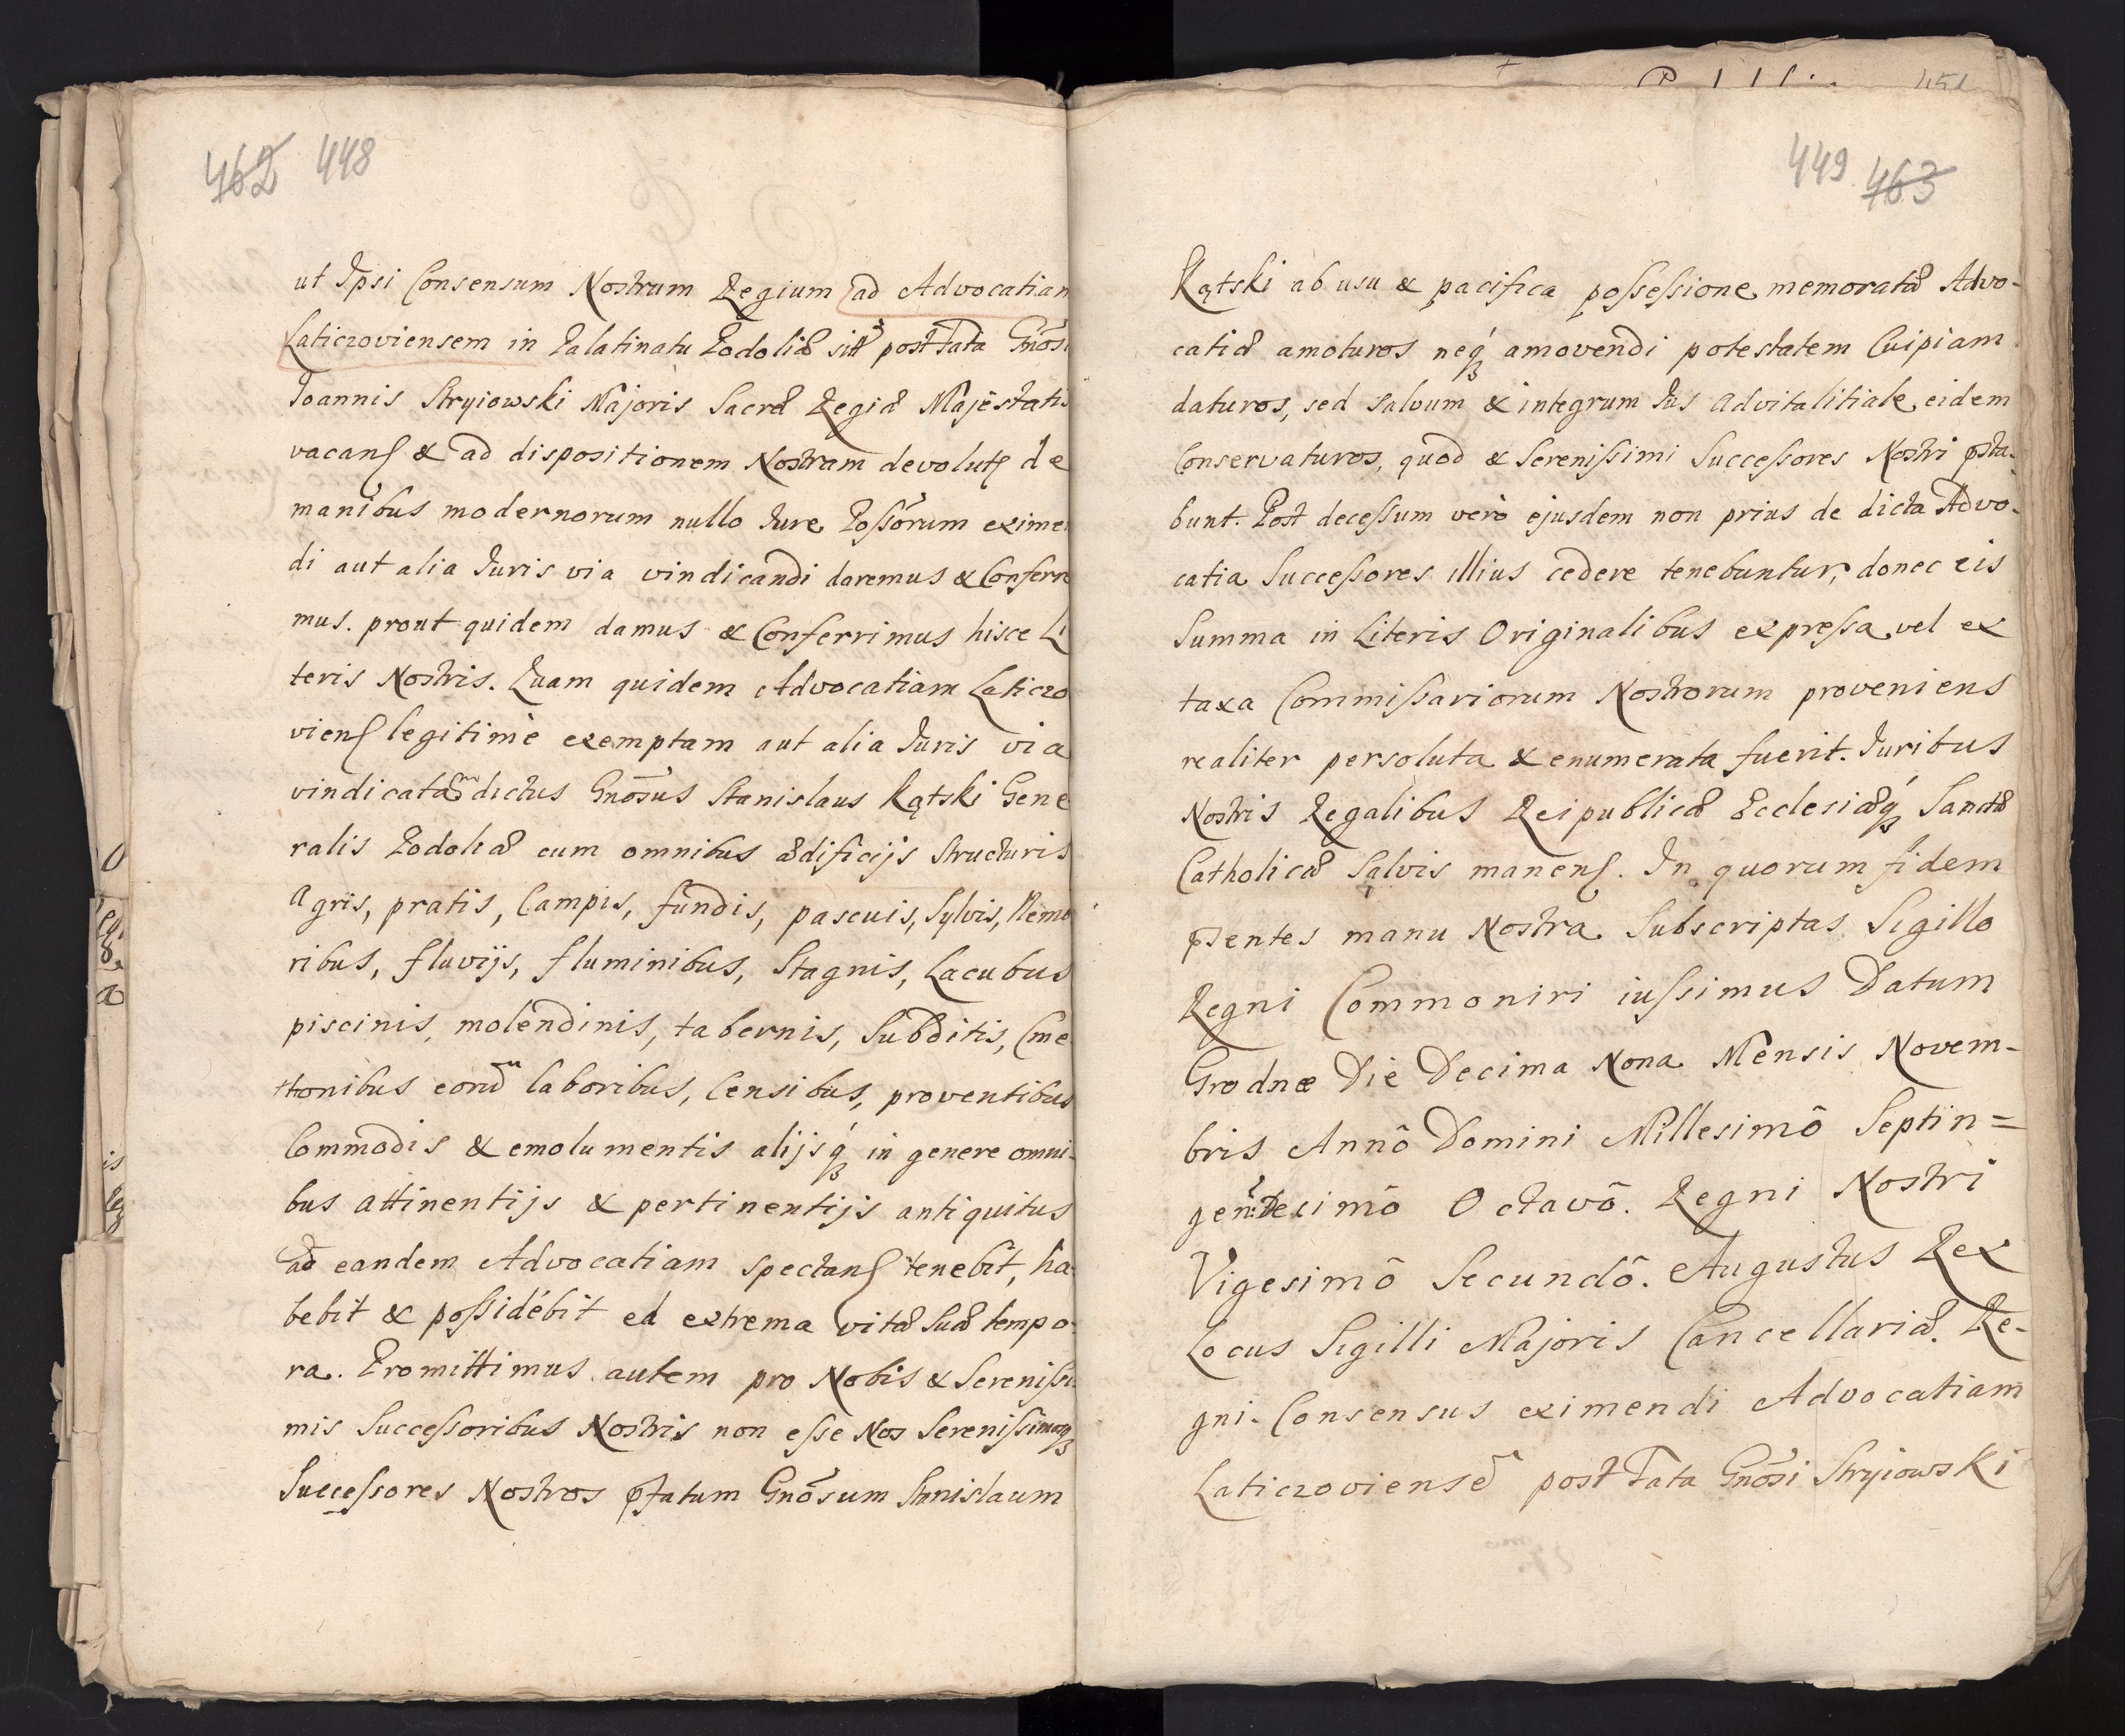 462 448
ut Ipsi Consensum Nostrum Regium ad Advocatiam
Laticzoviensem in Palatinatu Podoliæ sitt post Fata Gnosi
Joannis Stryiowski Majoris Sacræ Regiæ Majestatis
vacan̄ & ad dispositionem Nostram devolut̄ de
manibus modernorum nullo Jure Possorum eximen
di aut alia Juris via vindicandi daremus & Conferre
mus. prout quidem damus & Conferrimus hisce Li
teris Nostris. Quam quidem Advocatiam Laticzo
vien̄ legitimè exemptam aut alia Juris via
vindicatam dictus Gnōsus Stanislaus Kątski Gene
ralis Podoliæ cum omnibus ædificijs structuris
Agris, pratis, Campis, fundis, pascuis, Sylvis, Nemo
ribus, fluvijs, fluminibus, Stagnis, Lacubus
piscinis, molendinis, tabernis, Subditis, Cme
thonibus eorum laboribus, Censibus, proventibus
Commodis & emolumentis alijsq́ in genere omni-
bus attinentijs & pertinentijs antiquitus
ad eandem Advocatiam spectan̄ tenebit, ha-
bebit & possidebit ed extrema vitæ suæ tempo-
ra. Promittimus autem pro Nobis & Serenissi-
mis Successoribus Nostris non esse Nos Serenissimosq́
Successores Nostros pfatum Gnōsum Stanislaum
449 463
Kątski ab usu & pacifica possessione memoratæ Advo-
catiæ amoturos neq́ amovendi potestatem Cuipiam
daturos, sed salvum & integrum Jus advitalitiale eidem
Conservaturos, quod & Serenissimi Successores Nostri psta-
bunt. Post decessum verò ejusdem non prius de dicta Advo-
catia Successores illius cedere tenebuntur, donec eis
Summa in Literis Originalibus expressa vel ex
taxa Commissariorum Nostrorum proveniens
realiter persoluta & enumerata fuerit. Juribus
Nostris Regalibus Reipublicæ Ecclesiæq́ Sanctæ
Catholicæ Salvis manen̄. In quorum fidem
psentes manu Nostra Subscriptas Sigillo
Regni Commoniri iussimus Datum
Grodnæ Die Decima Nona Mensis Novem-
bris Annô Domini Millesimô Septin=
gen: Decimô Octavô. Regni Nostri
Vigesimô Secundô. Augustus Rex
Locus Sigilli Majoris Cancellariæ Re-
gni. Consensus eximendi Advocatiam
Laticzoviensē post Fata Gnōsi Stryiowski
451